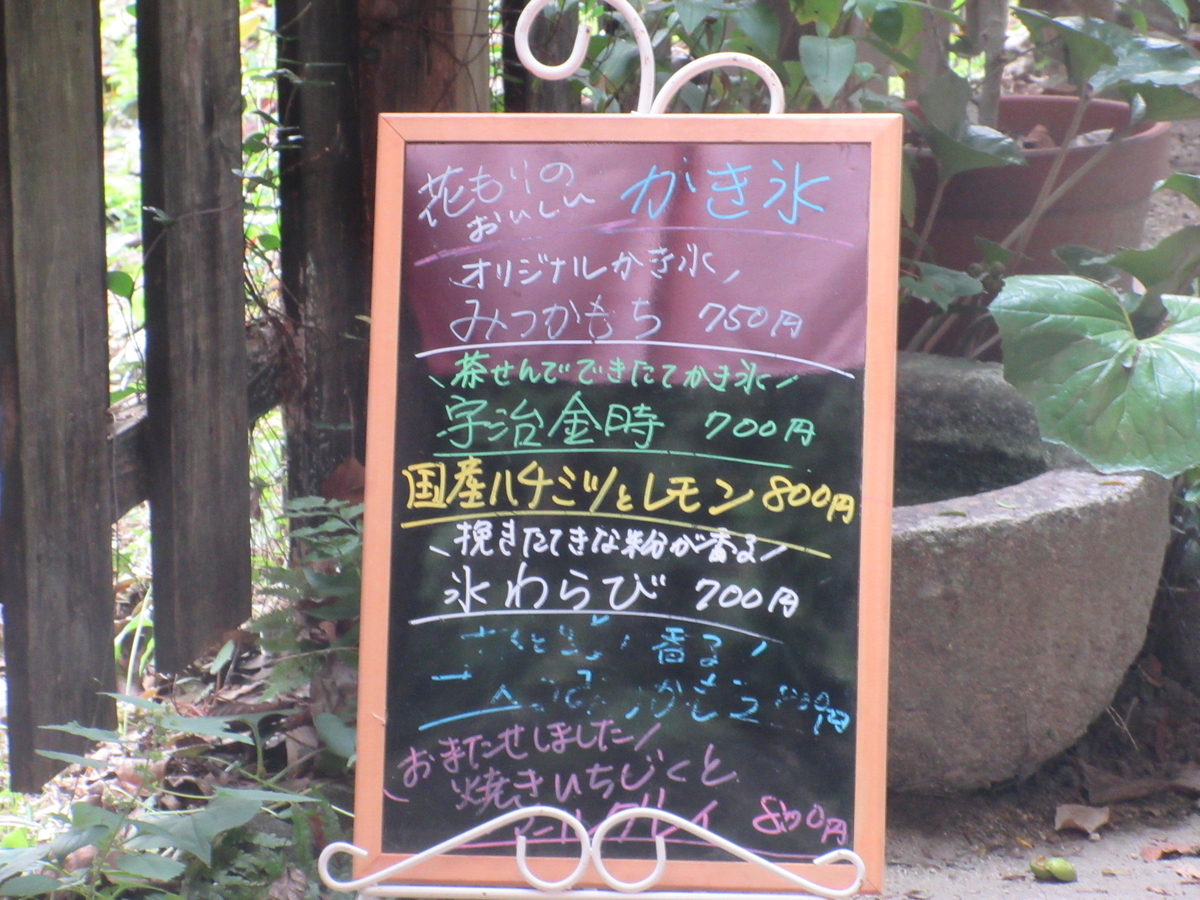 花もりの
おいしい かき氷
オリジナルかき氷
みつかもち 750円
茶せんでできたてかき氷
宇治金時 700円
国産ハチミツとレモン 800円
挽きたてきな粉が香る
氷わらび 700円
香る
円
おまたせしました
焼きいちじくと
アールグレイ 850円